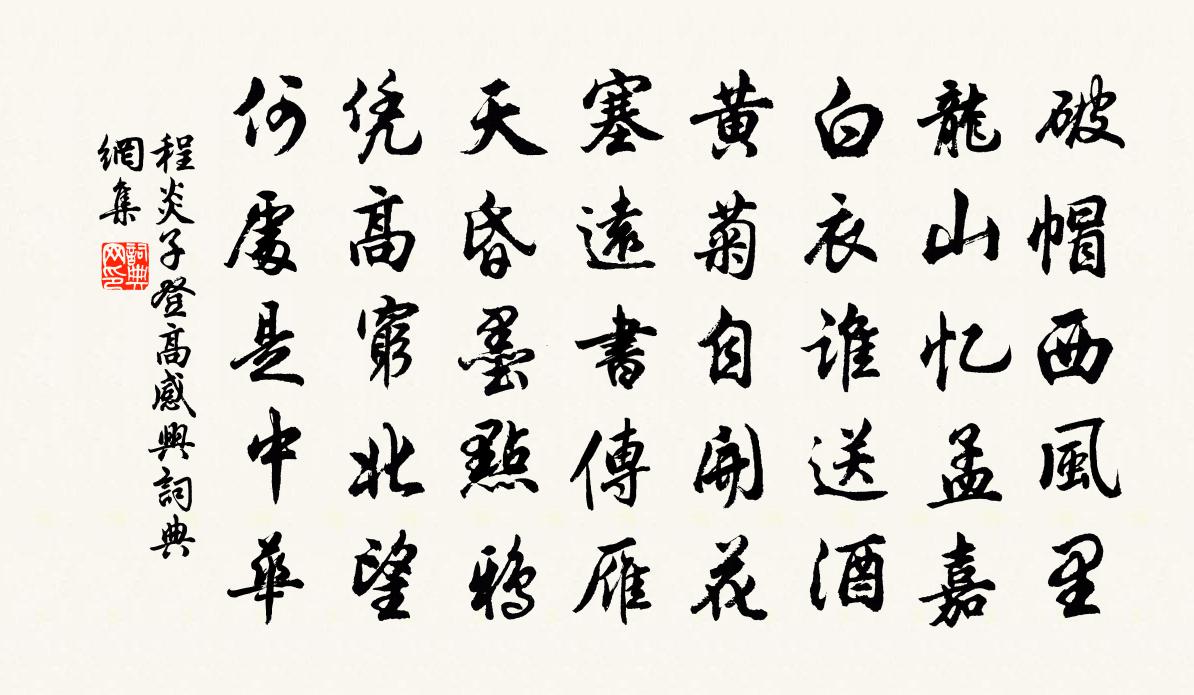 破帽西風里
龍山忆孟嘉
白衣誰送酒
黃菊自開花
塞遠書傳雁
天昏墨點鴉
凭高窮北望
何處是中華
程炎子登高感興詞典
網集
詞典網印